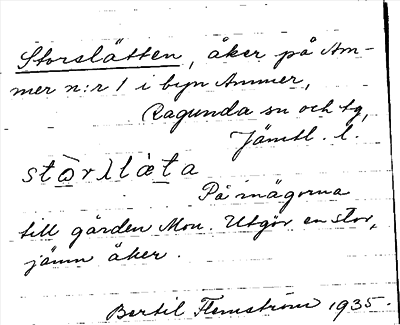 Storslätten, åker på Am-
mer n:r 1 i byn Ammer,
Ragunda sn och tg,
Jämtl. l.
stòrlìæta
På inägorna
till gården Mon. Utgör en stor,
jämn åker.
Bertil Flemström 1935.